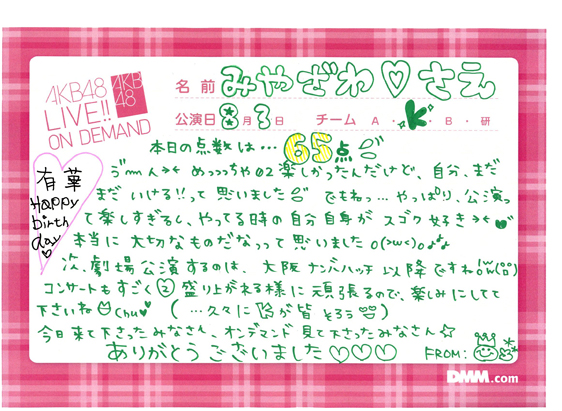 AKB48
LIVE!!
ON DEMAND
AKB
48
名前 みやざわ♡さえ
公演日 8月3日 チーム A・K・B・研
本日の点数は… 65点
めっっっちゃ02楽しかったんだけど、自分、まだ
まだいける!!って思いました でもねっ…やっぱり、公演っ
て楽しすぎるし、やってる時の自分自身がスゴク好き
本当に大切なものだなっって思いました o(>ω<)o♪♪
次、劇場公演するのは、大阪ナンバハッチ以降ですね
コンサートもすごく②盛り上がれる様に頑張るので、楽しみにしてて
下さいね Chu♥ (…久々に が皆そろう )
今日来て下さったみなさん、オンデマンド見て下さったみなさん☆
ありがとうございました♡♡♡ FROM:
有華
Happy
birth
day
DMM.com